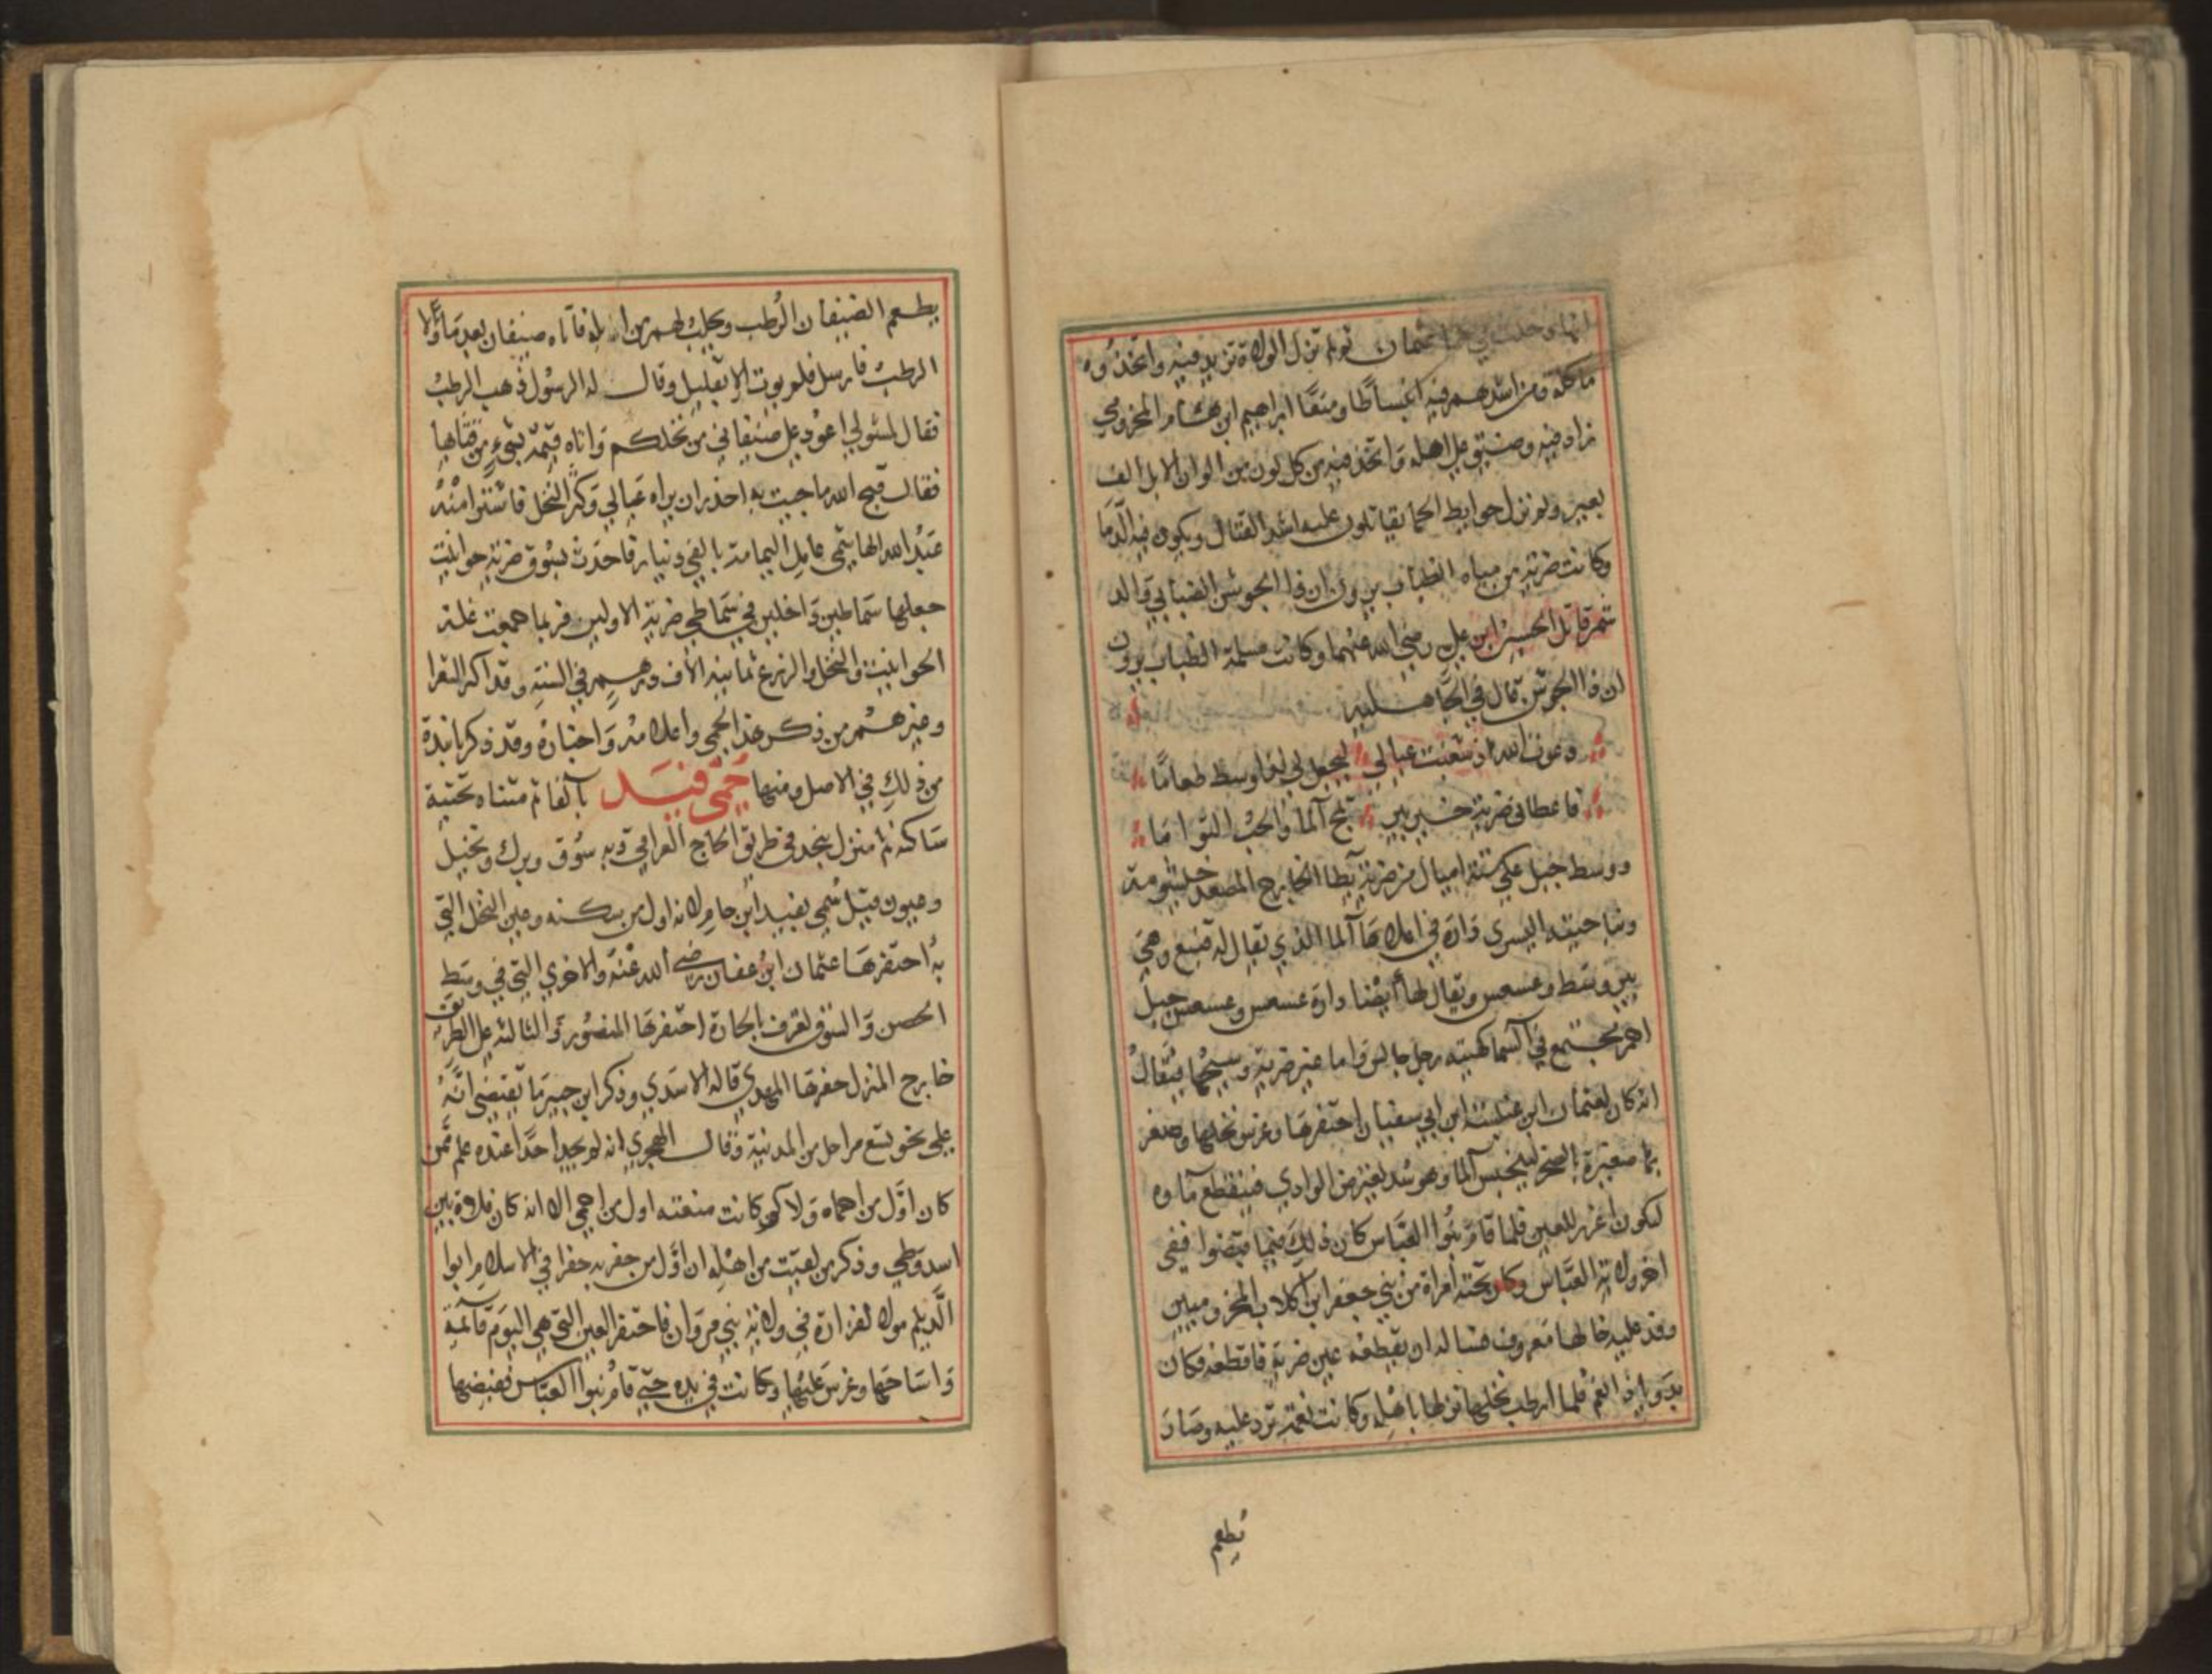 انها دخلت في حما عثمان ثم لم تزل الولاة تزيد فيه واتخذوه
ماكلة ومن اشدهم فيه انبساطا ومنعا ابراهيم ابن هشام المخزومي
زاد فيه وضيق على اهله واتخذ فيه من كل لون من الوان الابل الف
بعير ولم تزل حوايط الحما يقاتلون عليه اشد القتال ويكون فيه الدما
وكانت ضرية من مياه الضباب يرون ان ذا الجوشن الضبابي والد
شمر قاتل الحسين ابن علي رضي الله عنهما وكانت مسلمة الضباب يروون
ان ذا الجوشن قال في الجاهلية
دعوت الله اذ شعبت عيالي ليجعل لي لدا وسط طعاما
فاعطاني ضرية خير بير تمج الما والحب التواما
ووسط جبل على ستة اميال من ضرية يطا الخارج المصعد خيشومه
وبناحيته اليسرى دارة في املاها الما الذي يقال له قنيع وهي
بين وسط وعسعس ويقال لها ايضا دارة عسعس وعسعس جبل
احمر مجتمع في السما كهيئة رجل جالس واما عين ضرية وسيحها فيقال
انه كان لعثمان ابن عنبسة ابن ابي سفيان احتفرها وغرس نخلها وضفر
بها ضفيرة بالصخر لينحبس الما وهو سد لعرض الوادي فينقطع ماوه
ليكون اغزر للعين فلما قام بنوا العباس كان ذلك فيما قبضوا ففي
اخر ولاية العباس وكان تحته امراة من بني جعفر ابن كلاب المخزوميين
وفد عليه خالها معروف فساله ان يقطعه عين ضرية فاقطعه فكان
بدويا ذا النعم فلما ارطب نخلها نزلها باهله وكانت نعمه ترد عليه وصار
يطعم
يطعم الضيفان الرطب ويحلب لهم من ابله فاتاه ضيفان بعد ما ولا
الرطب فارسل فلم يوت الا بقليل وقال له الرسول ذهب الرطب
فقال لسئولي اعود على ضيفاني من نخلكم واتاه قيمه بشيء من قثاها
فقال قبح الله ما جيت به احذر ان يراه عيالي وكره النخل فاشترا منه
عبد الله الهاشمي عامل اليمامة بالفي دينار فاحدث بسوق ضرية حوانيت
جعلها سماطين داخلين في سماطي ضرية الاولين فربما جمعت غلة
الحوانيت والنخل والزرع ثمانية الاف درهم في السنة وقد اكثر الشعرا
وغيرهم من ذكر هذا الحمي واعلامه واخباره وقد ذكرنا نبذة
من ذلك في الاصل ومنها حمى فيد بالفا ثم مثناه تحتية
ساكنة منزل بنجد في طريق الحاج العراقي به سوق وبرك ونخيل
وعيون قيل سمي بفيد ابن حام لانه اول من سكنه وعين النخل التي
به احتفرها عثمان ابن عفان رضي الله عنه والاخرى التي في وسط
الحصن والسوق تعرف بالحارة احتفرها المنصور والثالثة على الطريق
خارج المنزل حفرها المهدي قاله الاسدي وذكر ابن جبير ما يقتضي انه
على نحو تسع مراحل من المدينة وقال الهجري انه لم يجد احدا عنده علم ممن
كان اول من احماه ولا كم كانت منعته اول من احمي الا انه كان فلاة بين
اسد وطي وذكر من لقيت من اهله ان اول من حفر به حفرا في الاسلام ابوا
الديلم مولا لفزارة في ولاية بني مروان فاحتفر العين التي هي اليوم قائمة
واساحها وغرس عليها وكانت في يده حتي قام بنوا العباس فقبضها